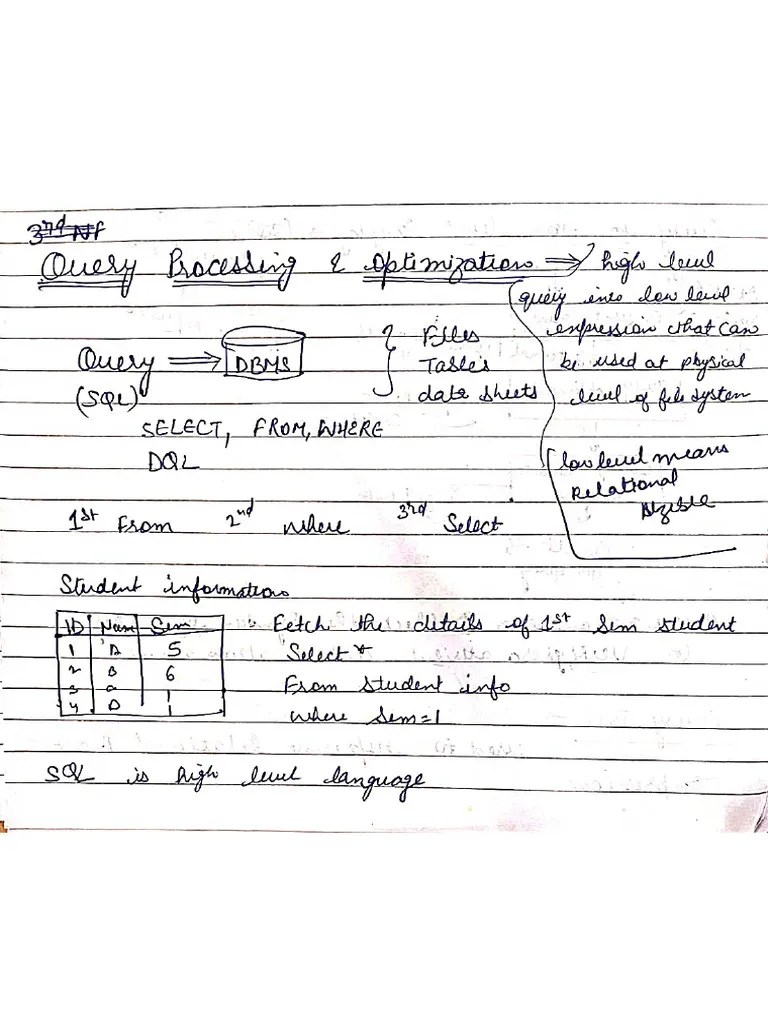 3rd NF
Query Processing & Optimization ⇒ high level
query into low level
expression that can
be used at physical
level of file system
low level means
Relational
Query ⇒ DBMS
(SQL)
Files
Tables
data sheets
SELECT, FROM, WHERE
DQL
1st From 2nd where 3rd Select
Student information
ID Nam Sem
1 A 5
2 B 6
3 C 1
4 D 1
"Fetch the details of 1st Sem student
"Select *
From Student info
where Sem=1
SQL is high level language